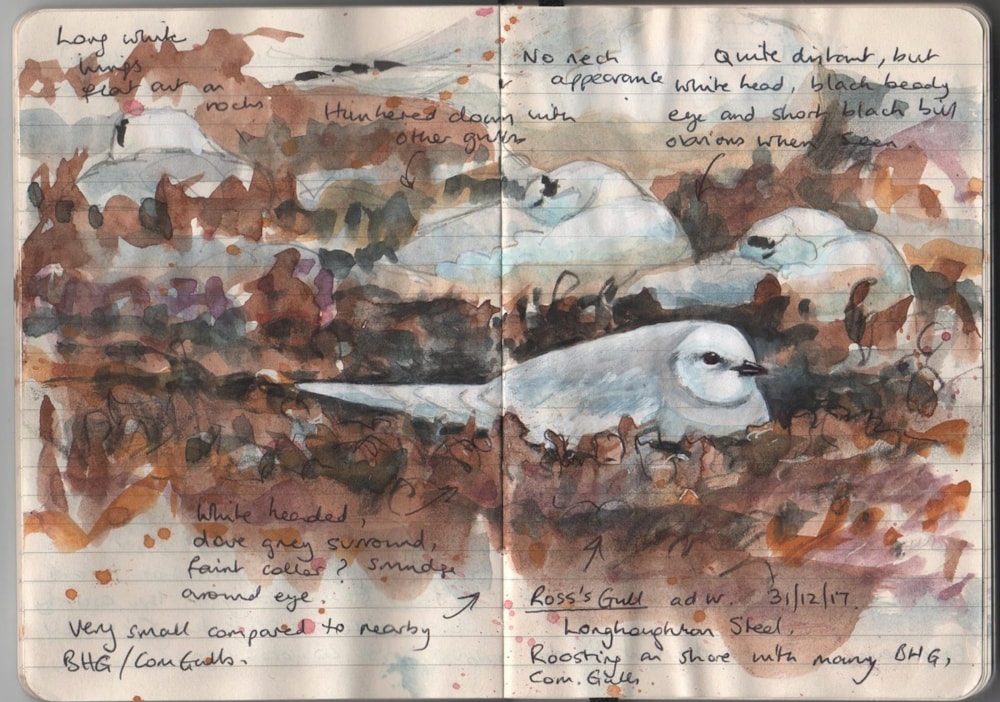 Long white
wings
flat out on
rocks
No neck
appearance
Quite distant, but
white head, black beady
eye and short black bill
obvious when seen
Hunkered down with
other gulls
White headed,
dove grey surround,
faint collar? smudge
around eye.
Very small compared to nearby
BHG/Com Gulls.
Ross's Gull ad w. 31/12/17.
Longhoughton Steel.
Roosting on shore with many BHG,
Com. Gulls.